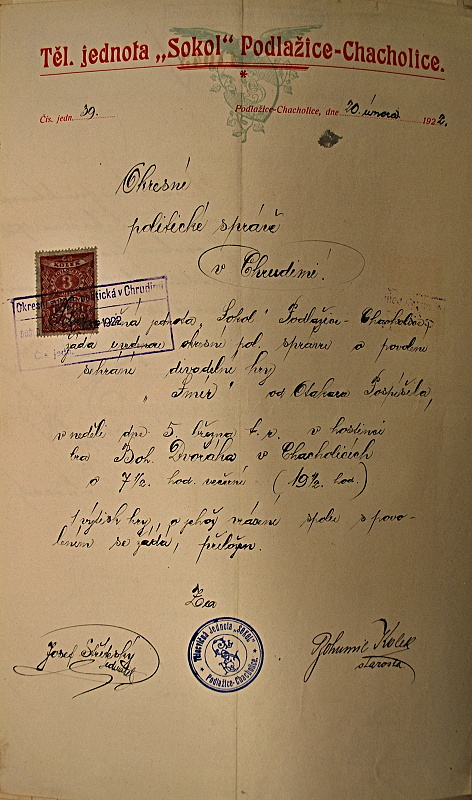 Těl. jednota „Sokol" Podlažice-Chacholice.
Čís. jedn. 39.
Podlažice-Chacholice, dne 20. února 1922.
Okresní
politické správě
v Chrudimi!
3
Okresní politická v Chrudimi
1922
Čís. jedn.
jednota „Sokol" Podlažice-Chacholice
žádá okresní pol. správu o povolení
sehrání divadelní hry
„Směr" od Otakara Pospíšila,
v neděli dne 5. března t. r. v hostinci
bra Boh. Dvořáka v Chacholicích
o 7 1/2. hod. večerní (19 1/2. hod.)
1 výtisk hry, o jehož vrácení spolu s povo-
lením se žádá, přiložen.
Za
Josef
Tělocvičná jednota „SOKOL"
Podlažice-Chacholice.
Bohumil Kolek
starosta